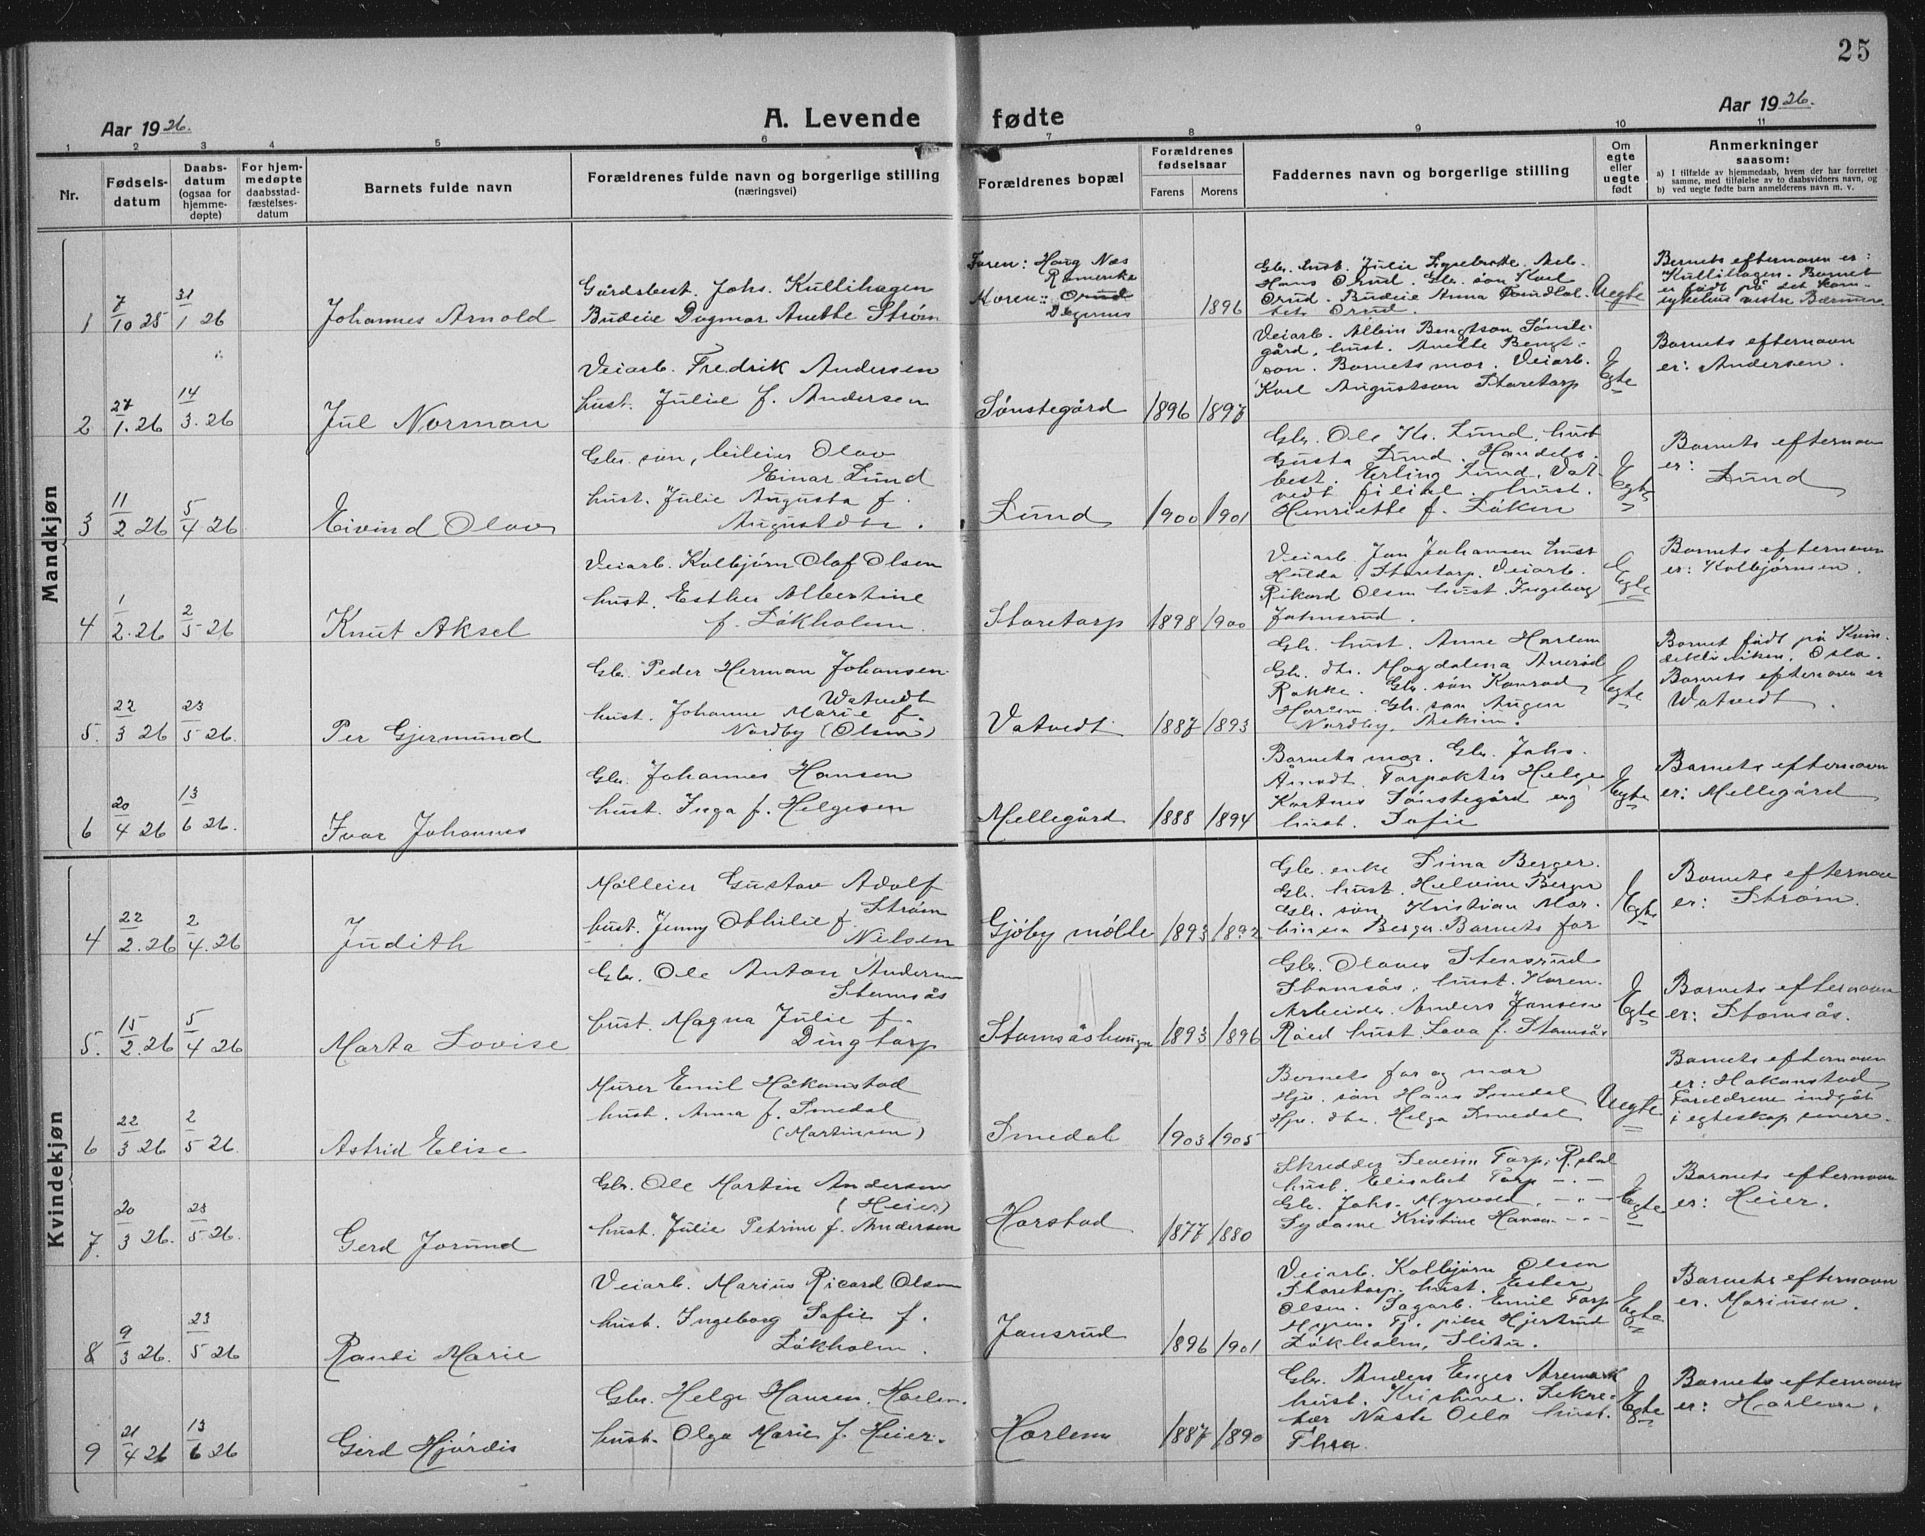 25
Aar 1926.
A. Levende fødte
Aar 1926.
1 2 3 4 5 6 7 8 9 10 11
Nr.
Fødsels-
datum
Daabs-
datum
(ogsaa for
hjemme-
døpte)
For hjem-
medøpte
daabsstad-
fæstelses-
datum
Barnets fulde navn
Forældrenes fulde navn og borgerlige stilling
(næringsvei)
Forældrenes bopæl
Forældrenes
fødselsaar
Farens
Morens
Faddernes navn og borgerlige stilling
Om
egte
eller
uegte
født
Anmerkninger
saasom:
a) I tilfælde av hjemmedaab, hvem der har forrettet
samme, med tilføielse av to daabsvidners navn, og
b) ved uegte fødte barn anmelderens navn m. v.
Mandkjøn
1
7/10 25
31/1 26
Johannes Arnold
Gårdsbest. Johs. Kullihagen
Budeie Dagmar Anette Strøm
Faren: Haug Næs
Romerike
Moren: Orud
Degernes
1896
Gbr. hust. Julie Lysebotte, Aeb.
Hans Orud. Gbr. søn Karl
Orud. Budeie Anna
Orud.
Uegte
Barnets efternavn er:
Kullihagen. Barnet
er født på det kom.
sykehus vestre Bærum
2
27/1. 26
14/3. 26
Jul Norman
Veiarb. Fredrik Andersen
hust. Julie f. Andersen
Sønstegård
1896
1897
Veiarb. Albin Bengtson Sønste-
gård, hust. Anette Bengt-
son. Barnets mor. Veiarb.
Karl Augustson Staretorp
Egte
Barnets efternavn
er: Andersen.
3
11/2 26
5/4 26
Eivind Olav
Gbr. søn, bileier Olav
Einar Lund
hust. Julie Augusta f.
Augustdtr.
Lund
1900
1901
Gbr. Ole Kr. Lund, hust
Gusta Lund. Handels-
best. Erling Lund. Vat-
vedt filial. hust.
Henriette f. Løken
Egte
Barnets efternavn
er:
Lund
4
1/2. 26
2/5 26
Knut Aksel
Veiarb. Kolbjørn Olaf Olsen
hust. Esther Albertine
f. Løkholm.
Staretorp
1898
1900
Veiarb. Jan Johansen hust
Hulda, Staretorp. Veiarb.
Rikard Olsen hust. Ingeborg
Jahnsrud.
Egte
Barnets efternavn
er: Kolbjørnsen.
5.
22/3 26
23/5 26.
Per Gjermund
Gbr. Peder Herman Johansen
Watvedt
hust. Johanne Marie f.
Nordby (Olsen)
Vatvedt
1887
1893
Gbr. hust. Anne Harlem
Gbr. dtr. Magdalena Auerød
Rakke. Gbr. søn Konrad
Harlem. Gbr. søn Augen
Nordby, Askim.
Egte
Barnet født på Kvin-
deklinikken, Oslo.
Barnets efternavn er
Watvedt.
6
20/4 26
13/6 26.
Ivar Johannes
Gbr. Johannes Hansen
hust. Inga f. Helgesen
Mellegård
1888
1894
Barnets mor. Gbr. Johs.
Åmodt. Forpakter Helge
Kortnes Sønstegård og
hust. Sofie
Egte
Barnets efternavn
er: Mellegård
Kvindekjøn
4
22/2. 26
2/4. 26
Judith
Mølleier Gustav Adolf
Strøm
hust. Jenny Othilie f.
Nilsen
Gjøby mølle
1893
1892
Gbr. enke Dina Berger.
Gbr. hust. Helvine Berger
Gbr. søn Kristian Mar-
tinsen Berger. Barnets far
Egte
Barnets efternavn
er: Strøm.
5.
15/2. 26
5/4 26
Marta Lovise
Gbr. Ole Anton Andersen
Stomsås
hust. Magna Julie f.
Dingtorp
Stomsåshaugen
1893
1896
Gbr. Olaves Stensrud
Stomsås, hust. Karen.
Arbeider Anders Jansen
Røed hust. Lava f. Stomsås
Egte
Barnets efternavn
er: Stomsås.
6
22/3 26
2/5 26.
Astrid Elise
Murer Emil Håkonstad
hust. Anna f. Smedal
(Martinsen)
Smedal
1903
1905
Barnets far og mor
Hjr. søn Hans Smedal
Hjr. dtr. Helga Smedal
Uegte
Barnets efternavn
er: Hakonstad
Foreldrene indgåt
i egteskap senere.
7.
20/3 26.
23/5 26.
Gerd Jorund
Gbr. Ole Martin Andersen
(Heier)
hust. Julie Petrine f. Andersen
Harstad
1877
1880
Skredder Severin Torp,
hust. Elisabet Torp -.-
Gbr. Johs. Myrvold. -.-
Sydame Kristine Hansen -.-
Egte
Barnets efternavn
er: Heier.
8
9/3 26.
23/5 26
Randi Marie
Veiarb. Marius Ricard Olsen
hust. Ingeborg Sofie f.
Løkholm.
Jansrud
1896
1901
Veiarb. Kolbjørn Olsen
Staretorp. hust. Ester
Olsen. Sagarb. Emil Torp
Myren. Tj. pike Hjertrud
Løkholm, Slitu.
Egte
Barnets efternavn
er. Mariusen.
9
21/4 26
13/6 26
Gerd Hjørdis
Gbr. Helge Hansen Harlem
hust. Olga Marie f. Heier.
Harlem
1887
1890
Gbr. Anders Enger Aremark
hust. Kristine. Sekre-
tær Oslo hust.
Thea.
Egte
Barnets efternavn
er: Harlem.